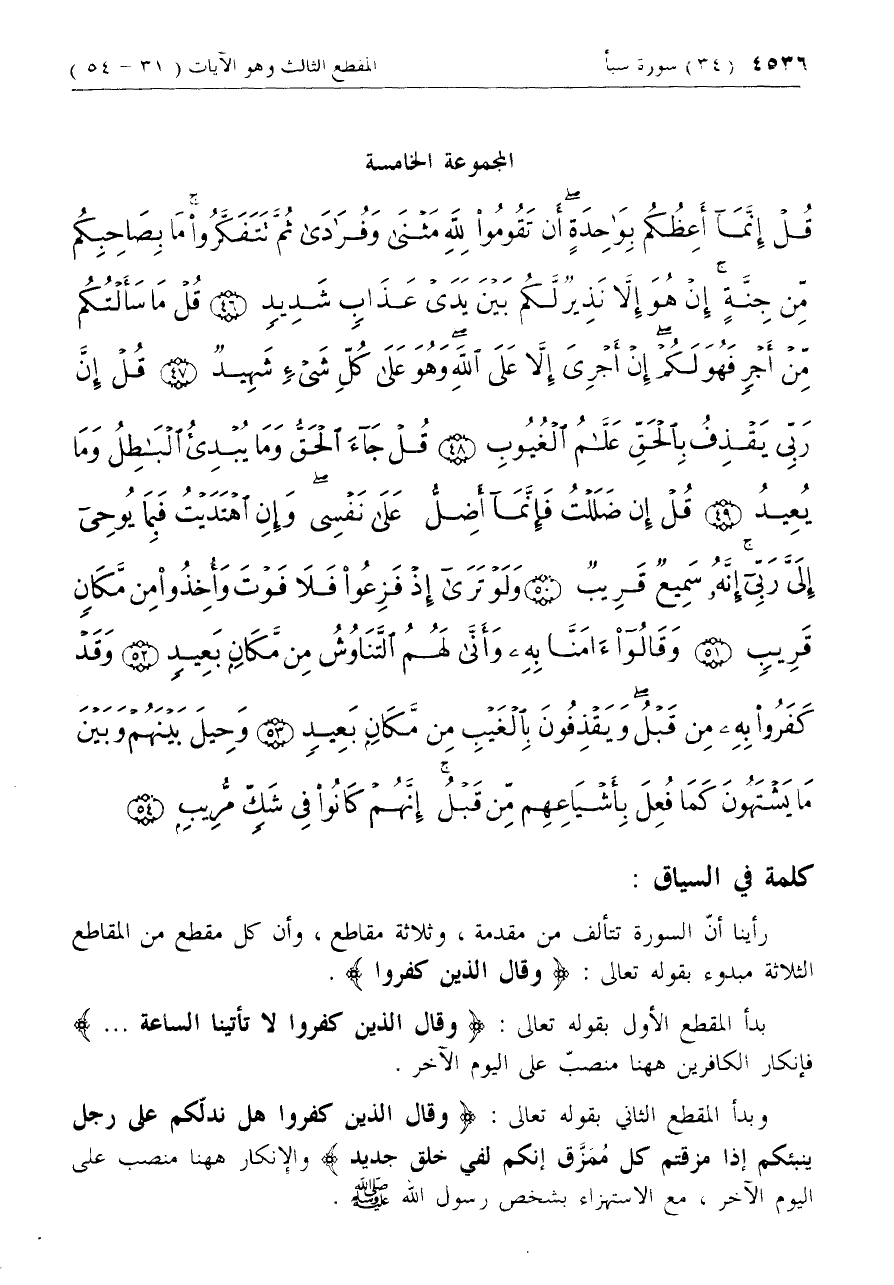 ٤٥٣٦ (٣٤) سورة سبأ المقطع الثالث وهو الآيات ( ٣١ – ٥٤ )
المجموعة الخامسة
قُلْ إِنَّمَآ أَعِظُكُم بِوَٰحِدَةٍ ۖ أَن تَقُومُوا۟ لِلَّهِ مَثْنَىٰ وَفُرَٰدَىٰ ثُمَّ تَتَفَكَّرُوا۟ ۚ مَا بِصَاحِبِكُم
مِّن جِنَّةٍ ۚ إِنْ هُوَ إِلَّا نَذِيرٌ لَّكُم بَيْنَ يَدَىْ عَذَابٍ شَدِيدٍ ﴿٤٦﴾ قُلْ مَا سَأَلْتُكُم
مِّنْ أَجْرٍ فَهُوَ لَكُمْ ۖ إِنْ أَجْرِىَ إِلَّا عَلَى ٱللَّهِ ۖ وَهُوَ عَلَىٰ كُلِّ شَىْءٍ شَهِيدٌ ﴿٤٧﴾ قُلْ إِنَّ
رَبِّى يَقْذِفُ بِٱلْحَقِّ عَلَّٰمُ ٱلْغُيُوبِ ﴿٤٨﴾ قُلْ جَآءَ ٱلْحَقُّ وَمَا يُبْدِئُ ٱلْبَٰطِلُ وَمَا
يُعِيدُ ﴿٤٩﴾ قُلْ إِن ضَلَلْتُ فَإِنَّمَآ أَضِلُّ عَلَىٰ نَفْسِى ۖ وَإِنِ ٱهْتَدَيْتُ فَبِمَا يُوحِىٓ
إِلَىَّ رَبِّىٓ ۚ إِنَّهُۥ سَمِيعٌ قَرِيبٌ ﴿٥٠﴾ وَلَوْ تَرَىٰٓ إِذْ فَزِعُوا۟ فَلَا فَوْتَ وَأُخِذُوا۟ مِن مَّكَانٍ
قَرِيبٍ ﴿٥١﴾ وَقَالُوٓا۟ ءَامَنَّا بِهِۦ وَأَنَّىٰ لَهُمُ ٱلتَّنَاوُشُ مِن مَّكَانٍۭ بَعِيدٍ ﴿٥٢﴾ وَقَدْ
كَفَرُوا۟ بِهِۦ مِن قَبْلُ ۖ وَيَقْذِفُونَ بِٱلْغَيْبِ مِن مَّكَانٍۭ بَعِيدٍ ﴿٥٣﴾ وَحِيلَ بَيْنَهُمْ وَبَيْنَ
مَا يَشْتَهُونَ كَمَا فُعِلَ بِأَشْيَاعِهِم مِّن قَبْلُ ۚ إِنَّهُمْ كَانُوا۟ فِى شَكٍّ مُّرِيبٍۭ ﴿٥٤﴾
كلمة في السياق :
رأينا أنّ السورة تتألف من مقدمة ، وثلاثة مقاطع ، وأن كل مقطع من المقاطع
الثلاثة مبدوء بقوله تعالى : ﴿ وقال الذين كفروا ﴾ .
بدأ المقطع الأول بقوله تعالى : ﴿ وقال الذين كفروا لا تأتينا الساعة ... ﴾
فإنكار الكافرين ههنا منصبّ على اليوم الآخر .
وبدأ المقطع الثاني بقوله تعالى : ﴿ وقال الذين كفروا هل ندلّكم على رجل
ينبئكم إذا مزقتم كل مُمَزَّق إنكم لفي خلق جديد ﴾ والإنكار ههنا منصب على
اليوم الآخر ، مع الاستهزاء بشخص رسول الله ﷺ .